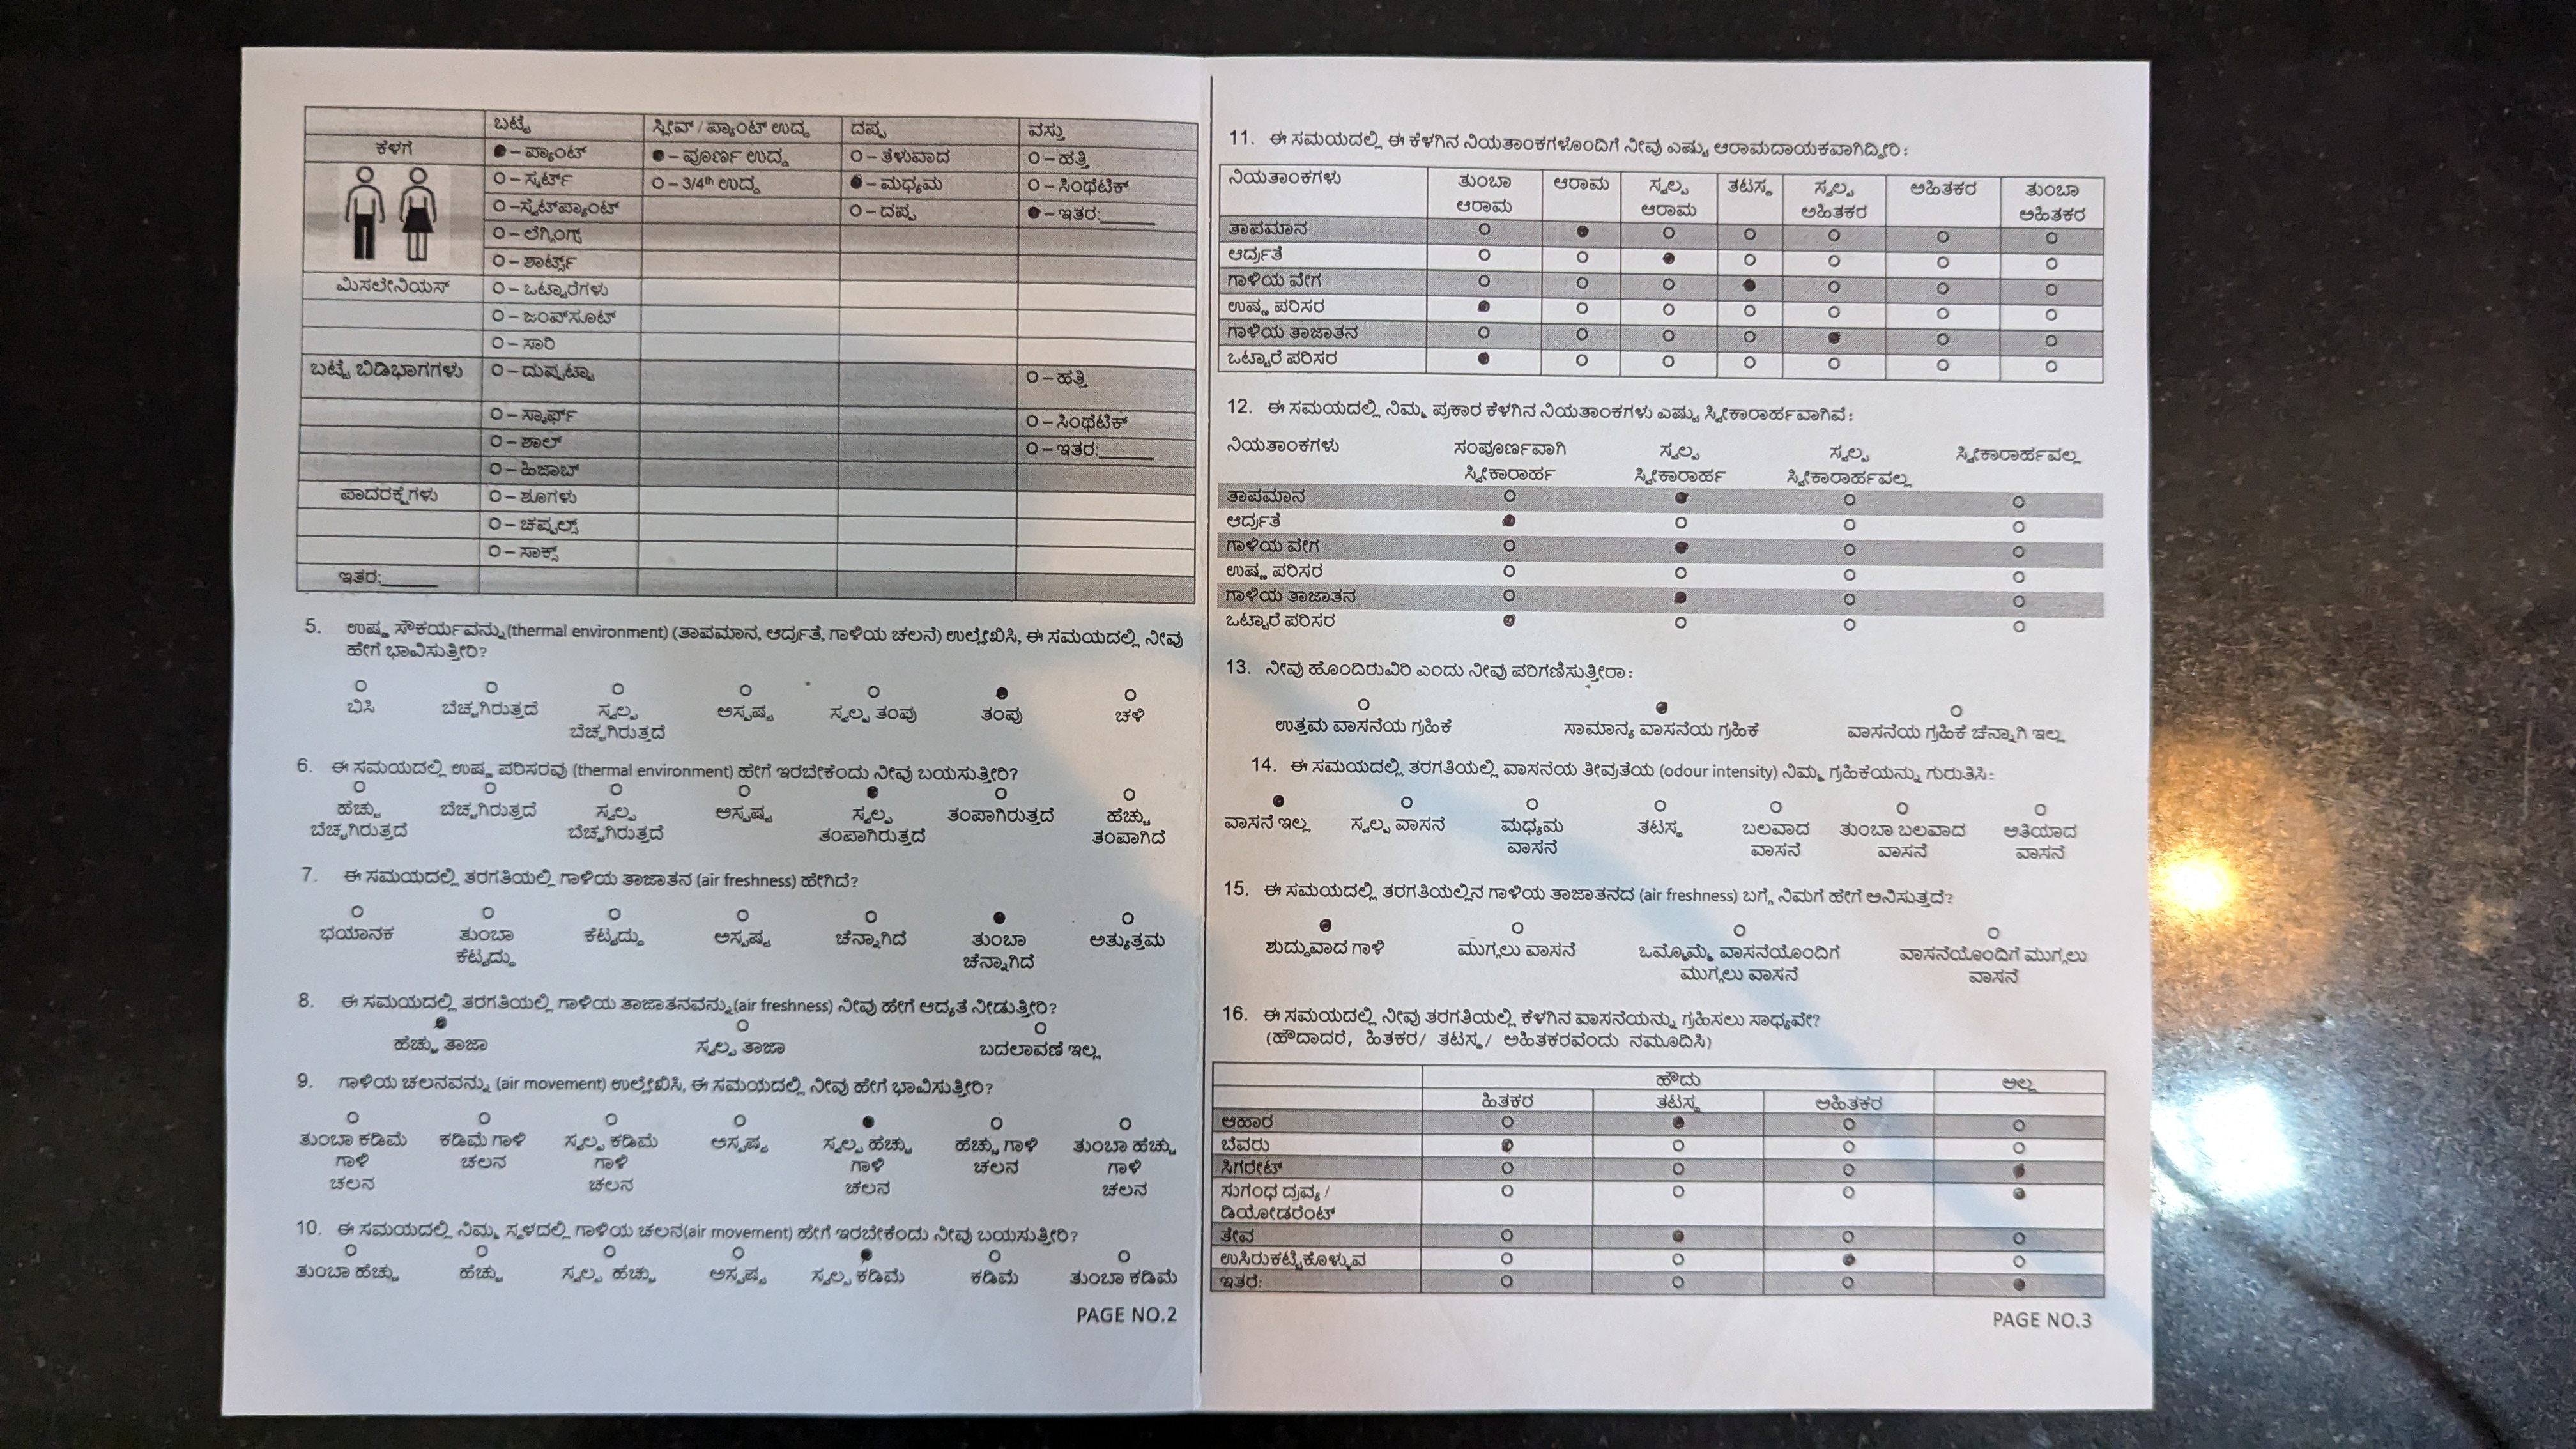 ಬಟ್ಟೆ ಸ್ಲೀವ್ / ಪ್ಯಾಂಟ್ ಉದ್ದ ದಪ್ಪ ವಸ್ತು
ಕೆಳಗೆ ●– ಪ್ಯಾಂಟ್ ●– ಪೂರ್ಣ ಉದ್ದ O – ತೆಳುವಾದ O – ಹತ್ತಿ
O – ಸ್ಕರ್ಟ್ O – 3/4th ಉದ್ದ ●– ಮಧ್ಯಮ O – ಸಿಂಥೆಟಿಕ್
O –ಸ್ವೆಟ್‌ಪ್ಯಾಂಟ್ O – ದಪ್ಪ ●– ಇತರ:______
O – ಲೆಗ್ಗಿಂಗ್ಸ್
O – ಶಾರ್ಟ್ಸ್
ಮಿಸಲೇನಿಯಸ್ O – ಒಟ್ಟಾರೆಗಳು
O – ಜಂಪ್‌ಸೂಟ್
O – ಸಾರಿ
ಬಟ್ಟೆ ಬಿಡಿಭಾಗಗಳು O – ದುಪ್ಪಟ್ಟಾ O – ಹತ್ತಿ
O – ಸ್ಕಾರ್ಫ್ O – ಸಿಂಥೆಟಿಕ್
O – ಶಾಲ್ O – ಇತರ:______
O – ಹಿಜಾಬ್
ಪಾದರಕ್ಷೆಗಳು O – ಶೂಗಳು
O – ಚಪ್ಪಲ್ಸ್
O – ಸಾಕ್ಸ್
ಇತರ:______
5. ಉಷ್ಣ ಸೌಕರ್ಯವನ್ನು(thermal environment) (ತಾಪಮಾನ, ಆರ್ದ್ರತೆ, ಗಾಳಿಯ ಚಲನೆ) ಉಲ್ಲೇಖಿಸಿ, ಈ ಸಮಯದಲ್ಲಿ ನೀವು
ಹೇಗೆ ಭಾವಿಸುತ್ತೀರಿ?
ಬಿಸಿ ಬೆಚ್ಚಗಿರುತ್ತದೆ ಸ್ವಲ್ಪ ಅಸ್ಪಷ್ಟ ಸ್ವಲ್ಪ ತಂಪು ತಂಪು ಚಳಿ
ಬೆಚ್ಚಗಿರುತ್ತದೆ
6. ಈ ಸಮಯದಲ್ಲಿ ಉಷ್ಣ ಪರಿಸರವು (thermal environment) ಹೇಗೆ ಇರಬೇಕೆಂದು ನೀವು ಬಯಸುತ್ತೀರಿ?
ಹೆಚ್ಚು ಬೆಚ್ಚಗಿರುತ್ತದೆ ಸ್ವಲ್ಪ ಅಸ್ಪಷ್ಟ ಸ್ವಲ್ಪ ತಂಪಾಗಿರುತ್ತದೆ ಹೆಚ್ಚು
ಬೆಚ್ಚಗಿರುತ್ತದೆ ಬೆಚ್ಚಗಿರುತ್ತದೆ ತಂಪಾಗಿರುತ್ತದೆ ತಂಪಾಗಿದೆ
7. ಈ ಸಮಯದಲ್ಲಿ ತರಗತಿಯಲ್ಲಿ ಗಾಳಿಯ ತಾಜಾತನ (air freshness) ಹೇಗಿದೆ?
ಭಯಾನಕ ತುಂಬಾ ಕೆಟ್ಟದ್ದು ಅಸ್ಪಷ್ಟ ಚೆನ್ನಾಗಿದೆ ತುಂಬಾ ಅತ್ಯುತ್ತಮ
ಕೆಟ್ಟದ್ದು ಚೆನ್ನಾಗಿದೆ
8. ಈ ಸಮಯದಲ್ಲಿ ತರಗತಿಯಲ್ಲಿ ಗಾಳಿಯ ತಾಜಾತನವನ್ನು(air freshness) ನೀವು ಹೇಗೆ ಆದ್ಯತೆ ನೀಡುತ್ತೀರಿ?
ಹೆಚ್ಚು ತಾಜಾ ಸ್ವಲ್ಪ ತಾಜಾ ಬದಲಾವಣೆ ಇಲ್ಲ
9. ಗಾಳಿಯ ಚಲನವನ್ನು (air movement) ಉಲ್ಲೇಖಿಸಿ, ಈ ಸಮಯದಲ್ಲಿ ನೀವು ಹೇಗೆ ಭಾವಿಸುತ್ತೀರಿ?
ತುಂಬಾ ಕಡಿಮೆ ಕಡಿಮೆ ಗಾಳಿ ಸ್ವಲ್ಪ ಕಡಿಮೆ ಅಸ್ಪಷ್ಟ ಸ್ವಲ್ಪ ಹೆಚ್ಚು ಹೆಚ್ಚು ಗಾಳಿ ತುಂಬಾ ಹೆಚ್ಚು
ಗಾಳಿ ಚಲನ ಗಾಳಿ ಗಾಳಿ ಚಲನ ಗಾಳಿ
ಚಲನ ಚಲನ ಚಲನ ಚಲನ
10. ಈ ಸಮಯದಲ್ಲಿ ನಿಮ್ಮ ಸ್ಥಳದಲ್ಲಿ ಗಾಳಿಯ ಚಲನ(air movement) ಹೇಗೆ ಇರಬೇಕೆಂದು ನೀವು ಬಯಸುತ್ತೀರಿ?
ತುಂಬಾ ಹೆಚ್ಚು ಹೆಚ್ಚು ಸ್ವಲ್ಪ ಹೆಚ್ಚು ಅಸ್ಪಷ್ಟ ಸ್ವಲ್ಪ ಕಡಿಮೆ ಕಡಿಮೆ ತುಂಬಾ ಕಡಿಮೆ
PAGE NO.2
11. ಈ ಸಮಯದಲ್ಲಿ ಈ ಕೆಳಗಿನ ನಿಯತಾಂಕಗಳೊಂದಿಗೆ ನೀವು ಎಷ್ಟು ಆರಾಮದಾಯಕವಾಗಿದ್ದೀರಿ:
ನಿಯತಾಂಕಗಳು ತುಂಬಾ ಆರಾಮ ಸ್ವಲ್ಪ ತಟಸ್ಥ ಸ್ವಲ್ಪ ಅಹಿತಕರ ತುಂಬಾ
ಆರಾಮ ಆರಾಮ ಅಹಿತಕರ ಅಹಿತಕರ
ತಾಪಮಾನ
ಆರ್ದ್ರತೆ
ಗಾಳಿಯ ವೇಗ
ಉಷ್ಣ ಪರಿಸರ
ಗಾಳಿಯ ತಾಜಾತನ
ಒಟ್ಟಾರೆ ಪರಿಸರ
12. ಈ ಸಮಯದಲ್ಲಿ ನಿಮ್ಮ ಪ್ರಕಾರ ಕೆಳಗಿನ ನಿಯತಾಂಕಗಳು ಎಷ್ಟು ಸ್ವೀಕಾರಾರ್ಹವಾಗಿವೆ:
ನಿಯತಾಂಕಗಳು ಸಂಪೂರ್ಣವಾಗಿ ಸ್ವಲ್ಪ ಸ್ವಲ್ಪ ಸ್ವೀಕಾರಾರ್ಹವಲ್ಲ
ಸ್ವೀಕಾರಾರ್ಹ ಸ್ವೀಕಾರಾರ್ಹ ಸ್ವೀಕಾರಾರ್ಹವಲ್ಲ
ತಾಪಮಾನ
ಆರ್ದ್ರತೆ
ಗಾಳಿಯ ವೇಗ
ಉಷ್ಣ ಪರಿಸರ
ಗಾಳಿಯ ತಾಜಾತನ
ಒಟ್ಟಾರೆ ಪರಿಸರ
13. ನೀವು ಹೊಂದಿರುವಿರಿ ಎಂದು ನೀವು ಪರಿಗಣಿಸುತ್ತೀರಾ:
ಉತ್ತಮ ವಾಸನೆಯ ಗ್ರಹಿಕೆ ಸಾಮಾನ್ಯ ವಾಸನೆಯ ಗ್ರಹಿಕೆ ವಾಸನೆಯ ಗ್ರಹಿಕೆ ಚೆನ್ನಾಗಿ ಇಲ್ಲ
14. ಈ ಸಮಯದಲ್ಲಿ ತರಗತಿಯಲ್ಲಿ ವಾಸನೆಯ ತೀವ್ರತೆಯ (odour intensity) ನಿಮ್ಮ ಗ್ರಹಿಕೆಯನ್ನು ಗುರುತಿಸಿ:
ವಾಸನೆ ಇಲ್ಲ ಸ್ವಲ್ಪ ವಾಸನೆ ಮಧ್ಯಮ ತಟಸ್ಥ ಬಲವಾದ ತುಂಬಾ ಬಲವಾದ ಅತಿಯಾದ
ವಾಸನೆ ವಾಸನೆ ವಾಸನೆ ವಾಸನೆ
15. ಈ ಸಮಯದಲ್ಲಿ ತರಗತಿಯಲ್ಲಿನ ಗಾಳಿಯ ತಾಜಾತನದ (air freshness) ಬಗ್ಗೆ ನಿಮಗೆ ಹೇಗೆ ಅನಿಸುತ್ತದೆ?
ಶುದ್ಧವಾದ ಗಾಳಿ ಮುಗ್ಗಲು ವಾಸನೆ ಒಮ್ಮೊಮ್ಮೆ ವಾಸನೆಯೊಂದಿಗೆ ವಾಸನೆಯೊಂದಿಗೆ ಮುಗ್ಗಲು
ಮುಗ್ಗಲು ವಾಸನೆ ವಾಸನೆ
16. ಈ ಸಮಯದಲ್ಲಿ ನೀವು ತರಗತಿಯಲ್ಲಿ ಕೆಳಗಿನ ವಾಸನೆಯನ್ನು ಗ್ರಹಿಸಲು ಸಾಧ್ಯವೇ?
(ಹೌದಾದರೆ, ಹಿತಕರ/ ತಟಸ್ಥ/ ಅಹಿತಕರವೆಂದು ನಮೂದಿಸಿ)
ಹೌದು ಅಲ್ಲ
ಹಿತಕರ ತಟಸ್ಥ ಅಹಿತಕರ
ಆಹಾರ
ಬೆವರು
ಸಿಗರೇಟ್
ಸುಗಂಧ ದ್ರವ್ಯ /
ಡಿಯೋಡರೆಂಟ್
ತೇವ
ಉಸಿರುಕಟ್ಟಿಕೊಳ್ಳುವ
ಇತರೆ:
PAGE NO.3